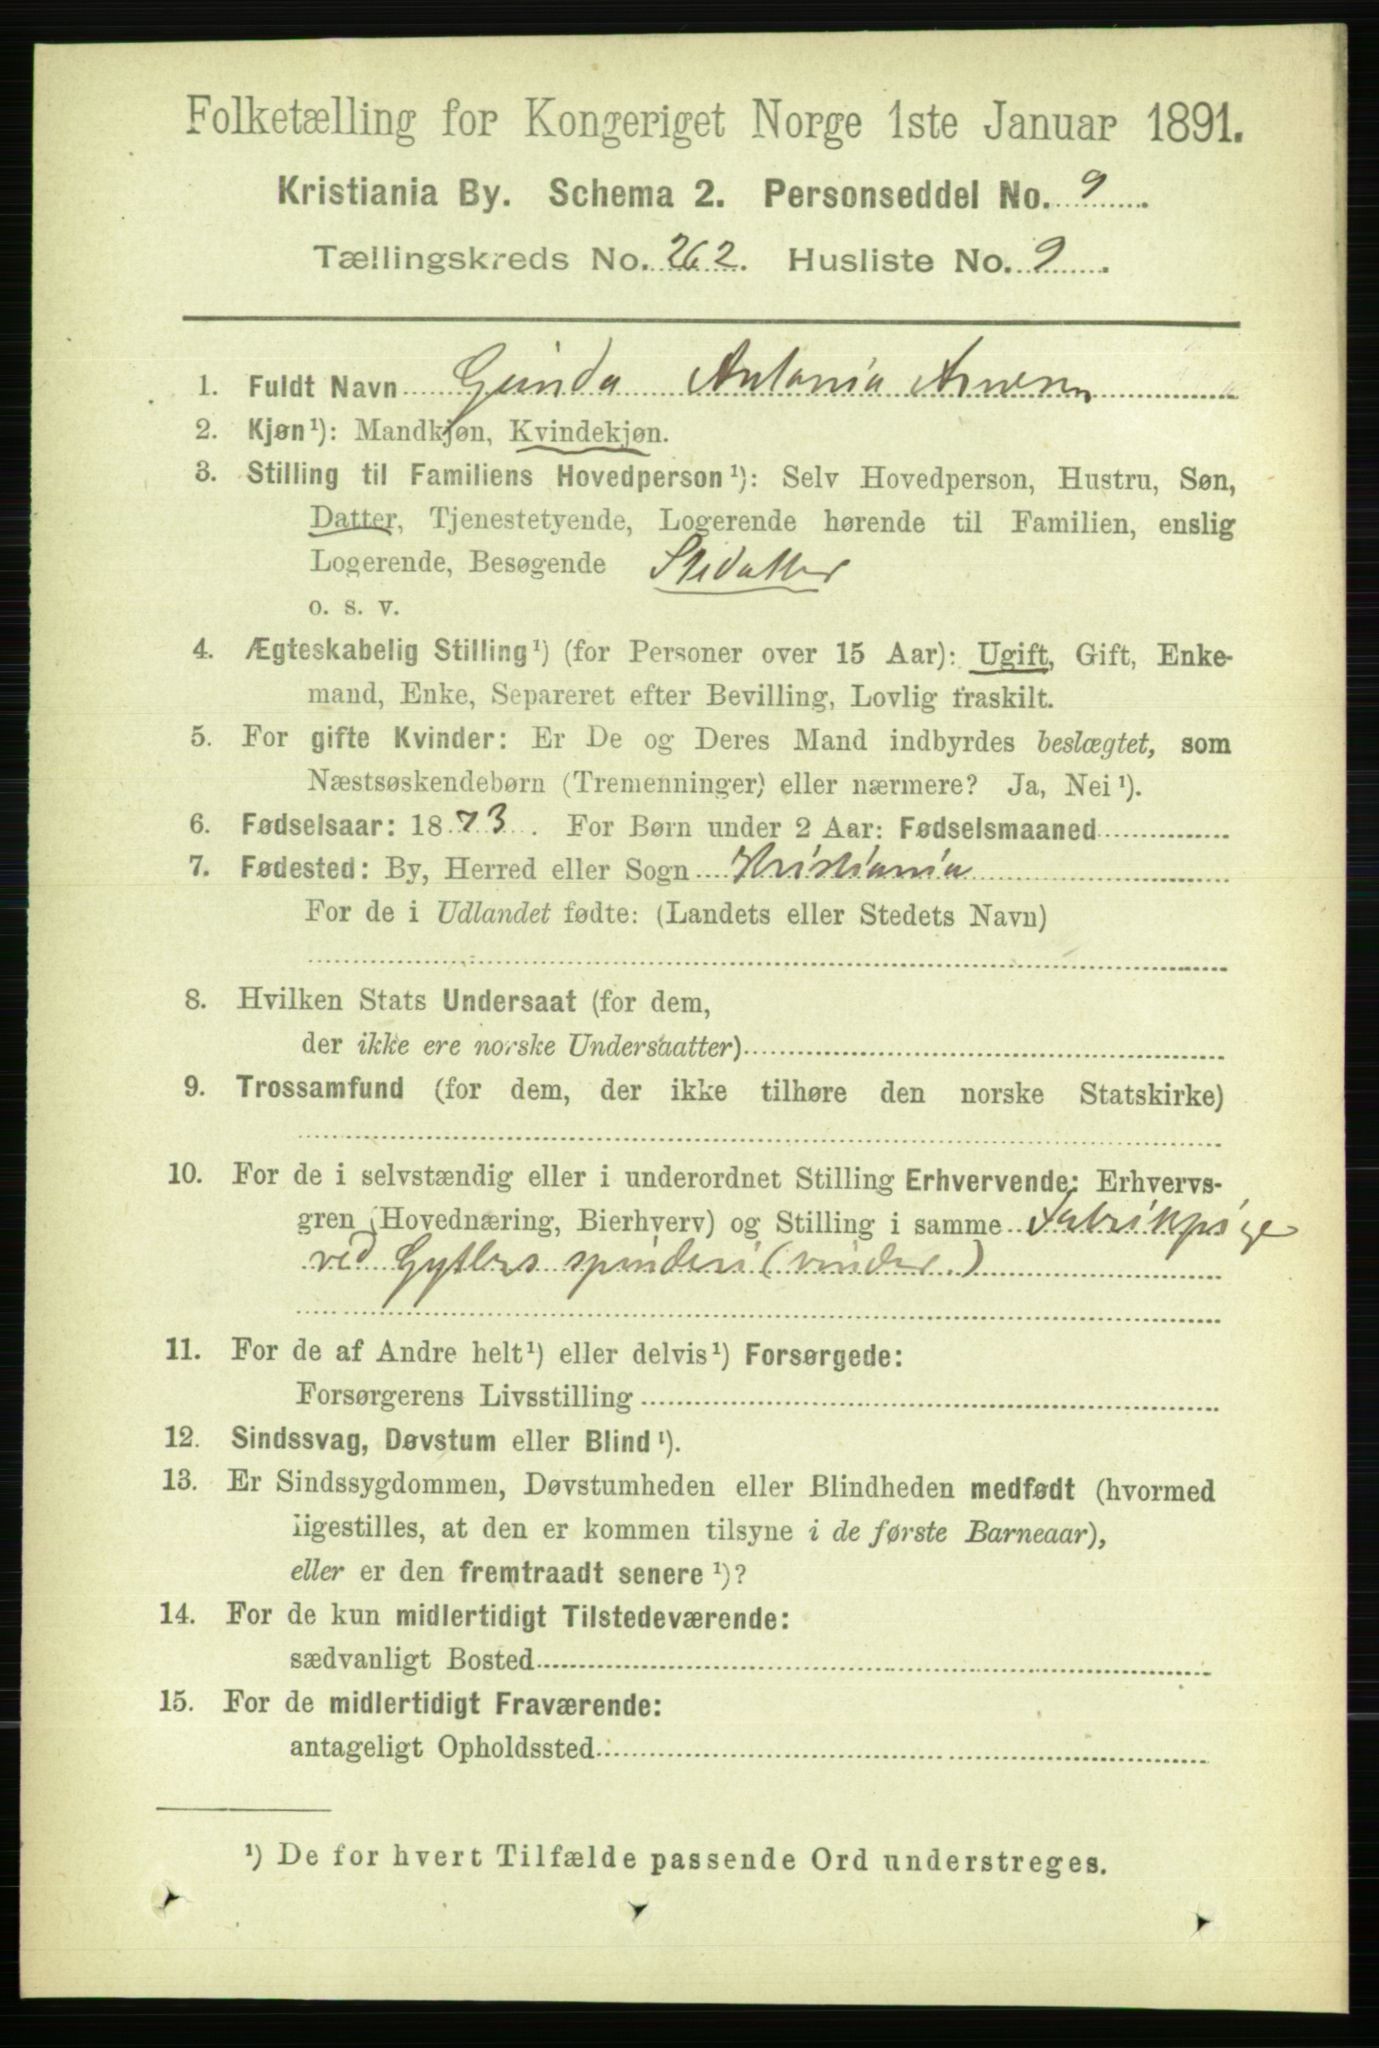 Folketælling for Kongeriget Norge 1ste Januar 1891.
Kristiania By. Schema 2. Personseddel No. 9.
Tællingskreds No. 262. Husliste No. 9.
1. Fuldt Navn Gunda Antonia Arnesen
2. Kjøn¹): Mandkjøn, Kvindekjøn.
3. Stilling til Familiens Hovedperson¹): Selv Hovedperson, Hustru, Søn,
Datter, Tjenestetyende, Logerende hørende til Familien, enslig
Logerende, Besøgende Stedatter
o. s. v.
4. Ægteskabelig Stilling¹) (for Personer over 15 Aar): Ugift, Gift, Enke-
mand, Enke, Separeret efter Bevilling, Lovlig fraskilt.
5. For gifte Kvinder: Er De og Deres Mand indbyrdes beslægtet, som
Næstsøskendebørn (Tremenninger) eller nærmere? Ja, Nei¹).
6. Fødselsaar: 1873. For Børn under 2 Aar: Fødselsmaaned
7. Fødested: By, Herred eller Sogn Kristiania
For de i Udlandet fødte: (Landets eller Stedets Navn)
8. Hvilken Stats Undersaat (for dem,
der ikke ere norske Undersaatter)
9. Trossamfund (for dem, der ikke tilhøre den norske Statskirke)
10. For de i selvstændig eller i underordnet Stilling Erhvervende: Erhvervs-
gren (Hovednæring, Bierhverv) og Stilling i samme Fabrikpige
ved spinderi (vinder)
11. For de af Andre helt¹) eller delvis¹) Forsørgede:
Forsørgerens Livsstilling
12. Sindssvag, Døvstum eller Blind¹).
13. Er Sindssygdommen, Døvstumheden eller Blindheden medfødt (hvormed
ligestilles, at den er kommen tilsyne i de første Barneaar),
eller er den fremtraadt senere¹)?
14. For de kun midlertidigt Tilstedeværende:
sædvanligt Bosted
15. For de midlertidigt Fraværende:
antageligt Opholdssted
¹) De for hvert Tilfælde passende Ord understreges.